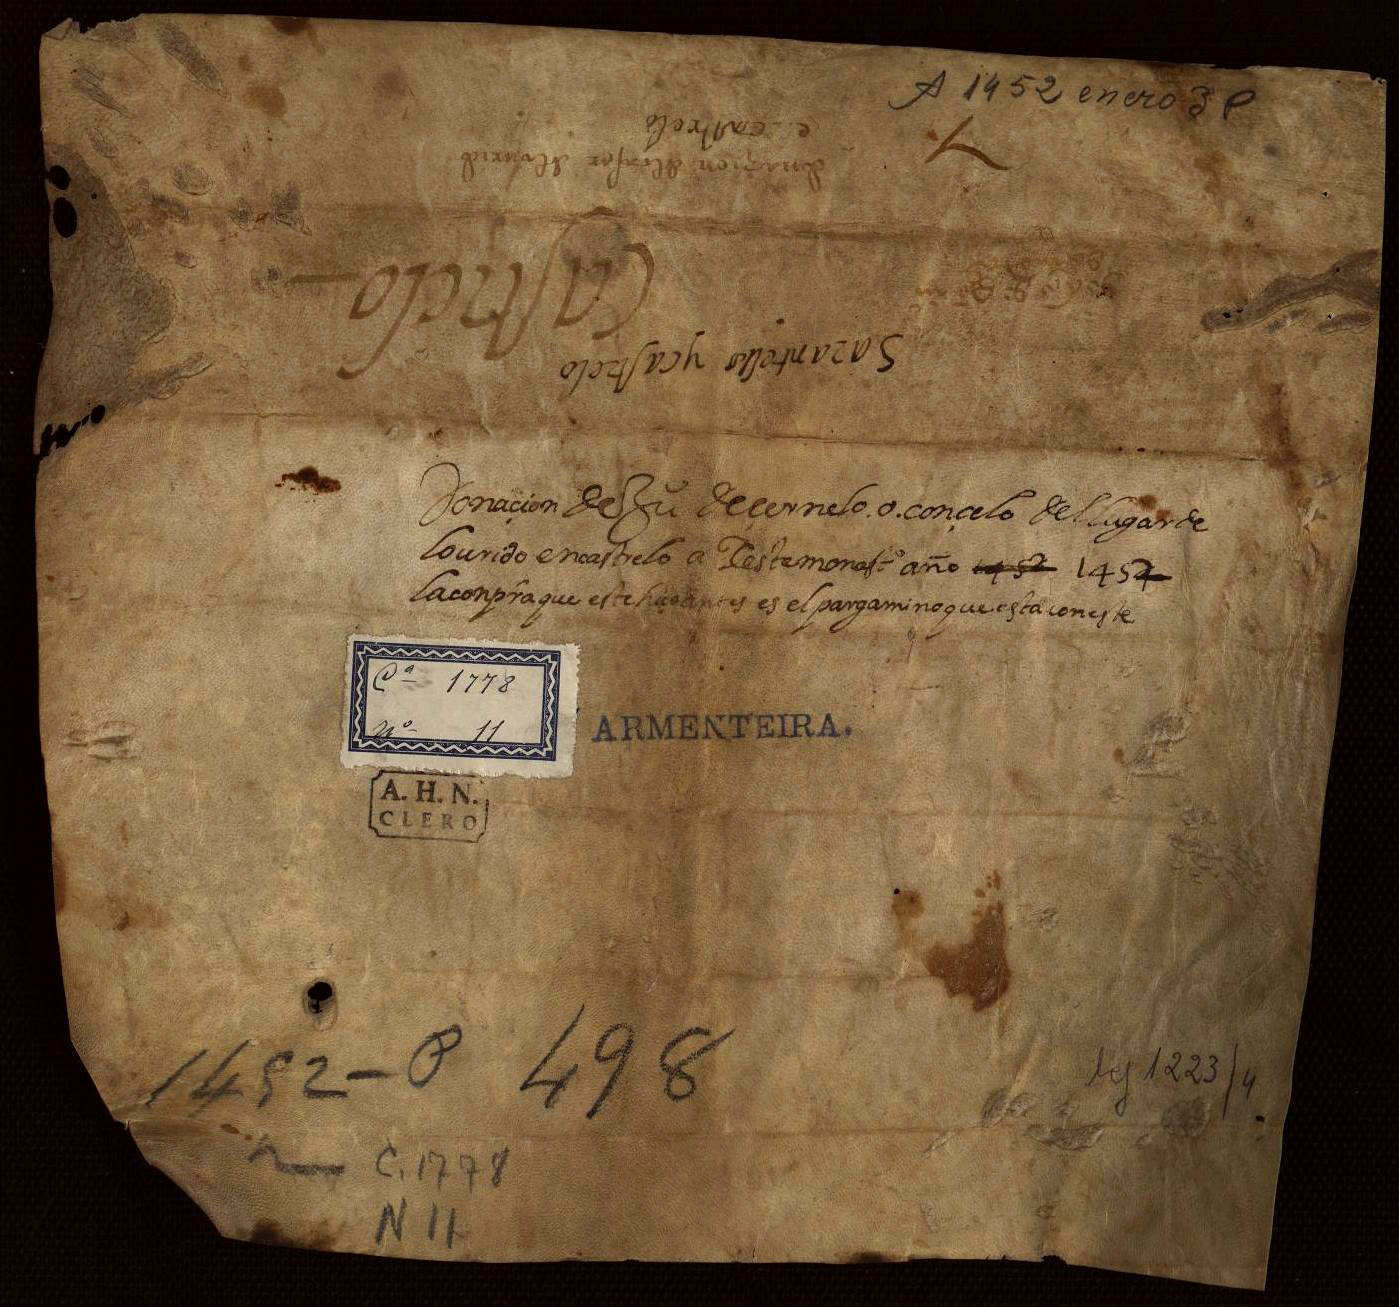 A 1452 enero 3 P
e castrelo
Castrelo
Sazantellos y castrelo
Donaçion de de çernelo. o. conçelo del lugar de
lourido encastrelo a Este monast.º año 1452 1452
la conpra que este hizo antes es el pargamino que esta con este
Cª 1778
Nº 11
ARMENTEIRA.
A. H. N.
CLERO
1452 - P 498
leg 1223/4
C. 1778
N 11